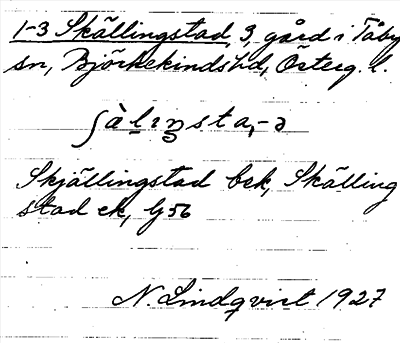 1-3 Skällingstad, 3, gård i Tåby
sn, Björkekinds hd, Österg. l.
ʃàlıŋsta,-ə
Skjällingstad bek, Skälling
stad ek, lj 56
N. Lindqvist 1927